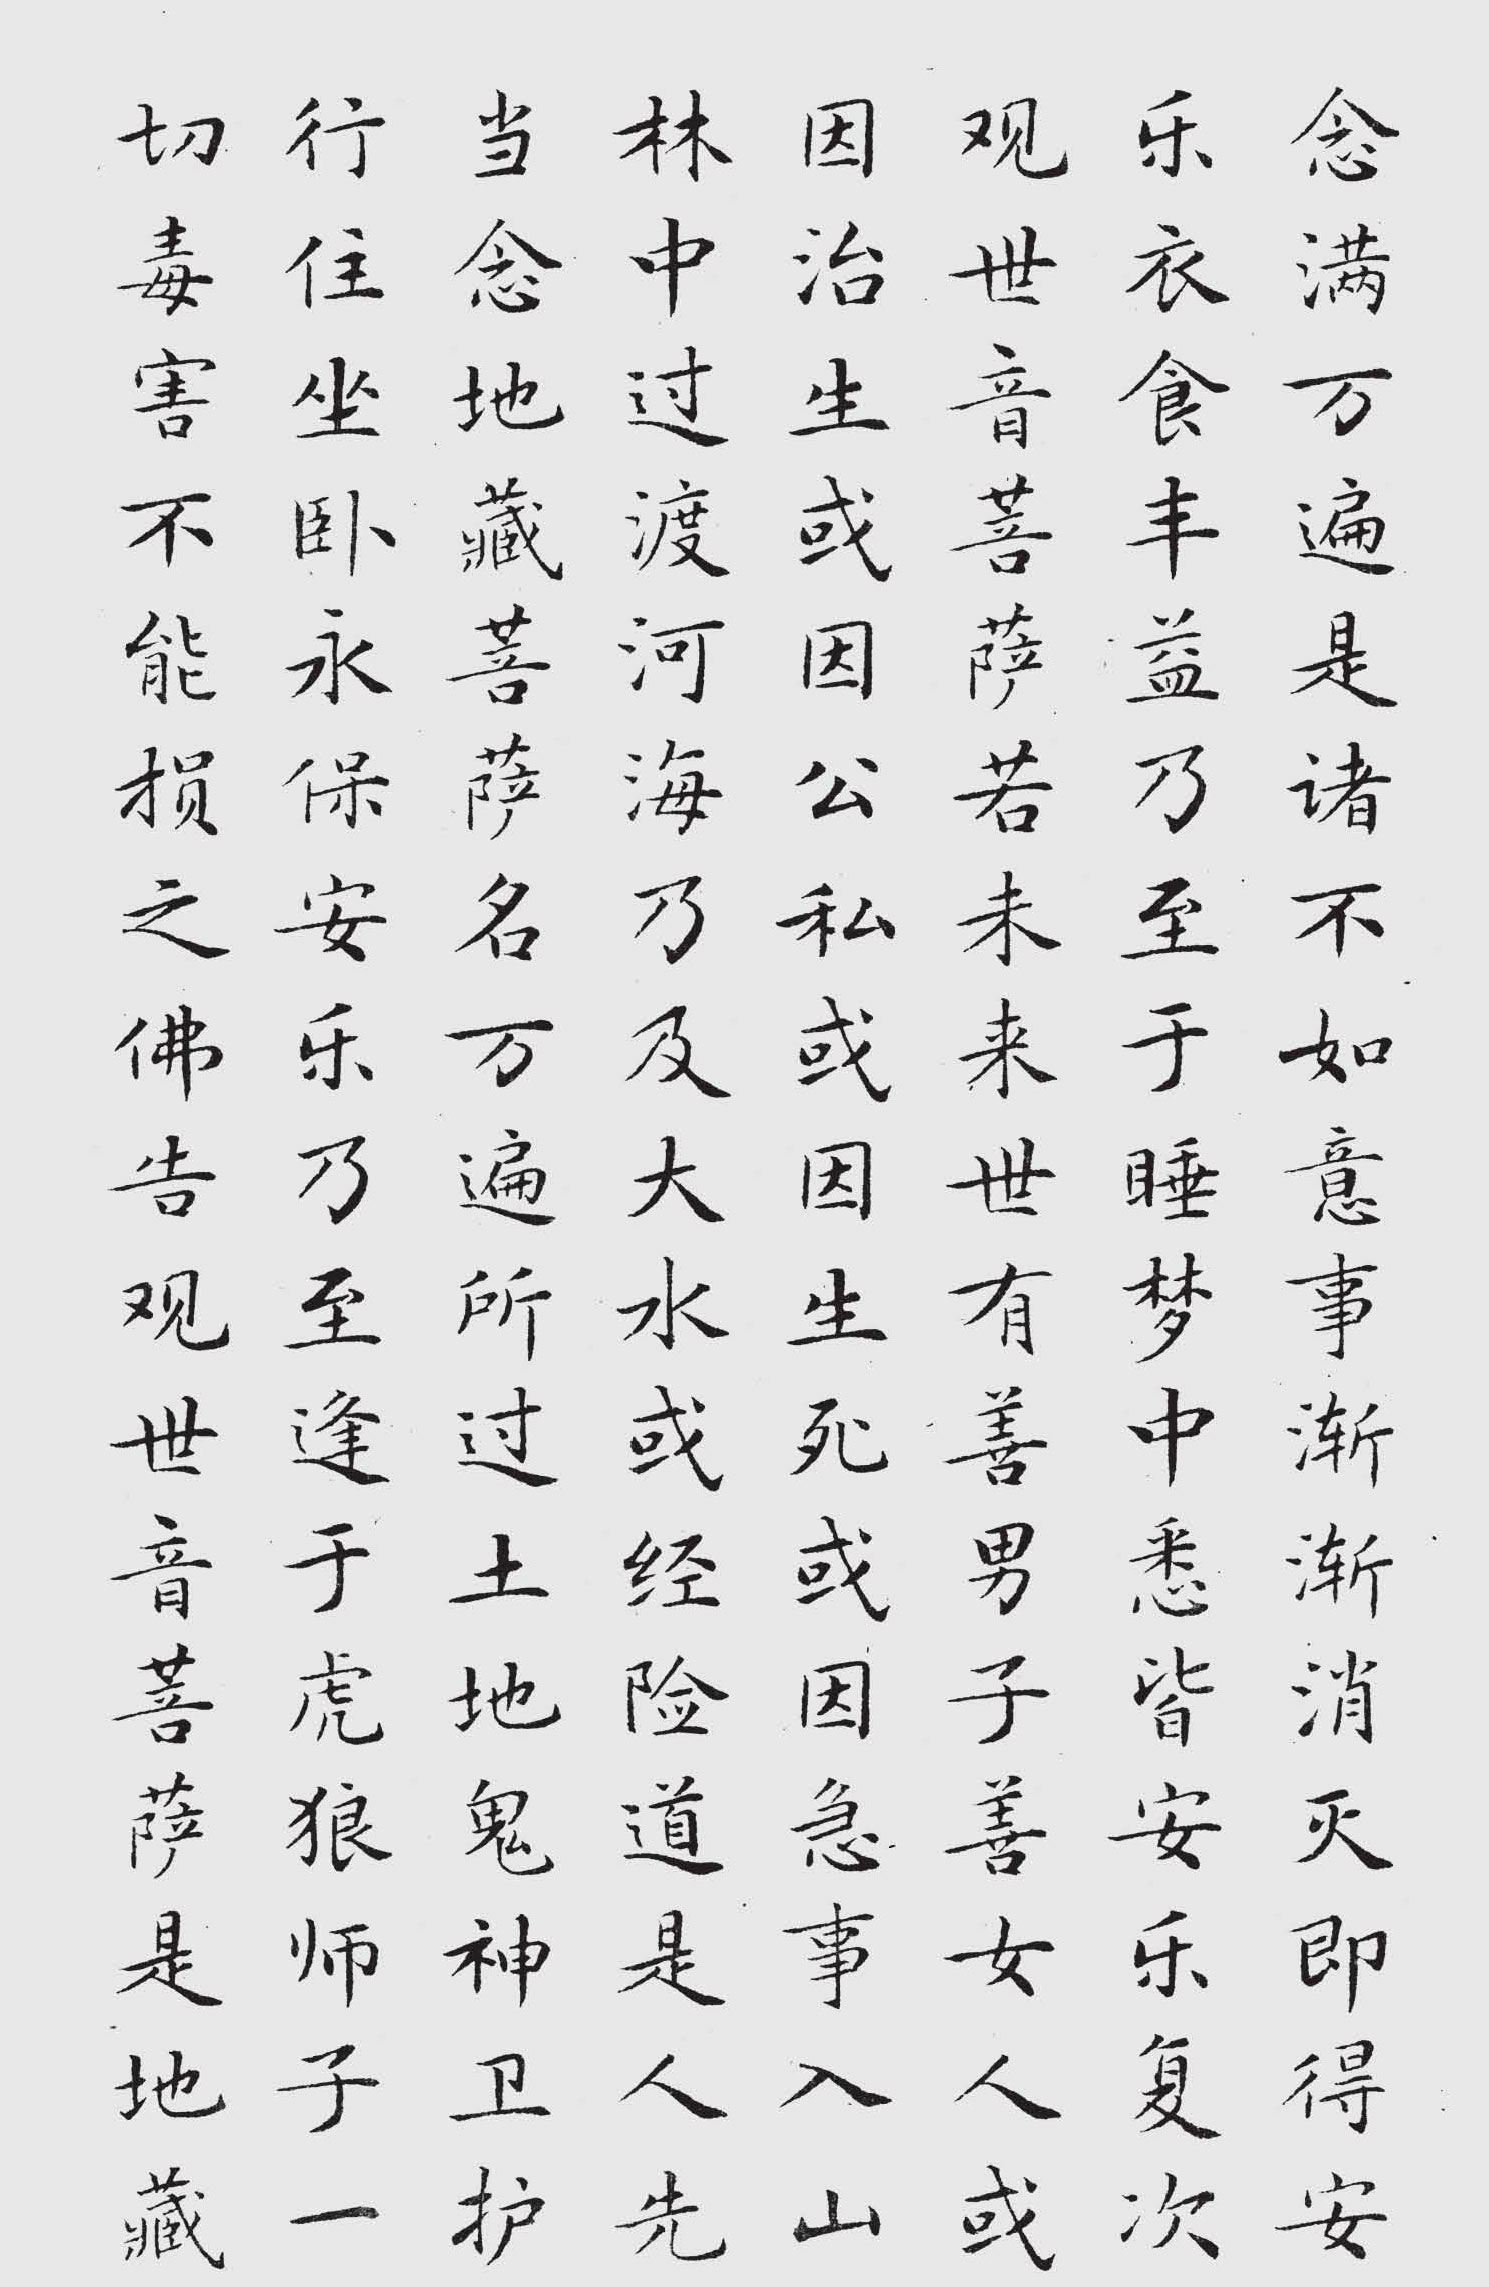 念满万遍是诸不如意事渐渐消灭即得安
乐衣食丰益乃至于睡梦中悉皆安乐复次
观世音菩萨若未来世有善男子善女人或
因治生或因公私或因生死或因急事入山
林中过渡河海乃及大水或经险道是人先
当念地藏菩萨名万遍所过土地鬼神卫护
行住坐卧永保安乐乃至逢于虎狼师子一
切毒害不能损之佛告观世音菩萨是地藏